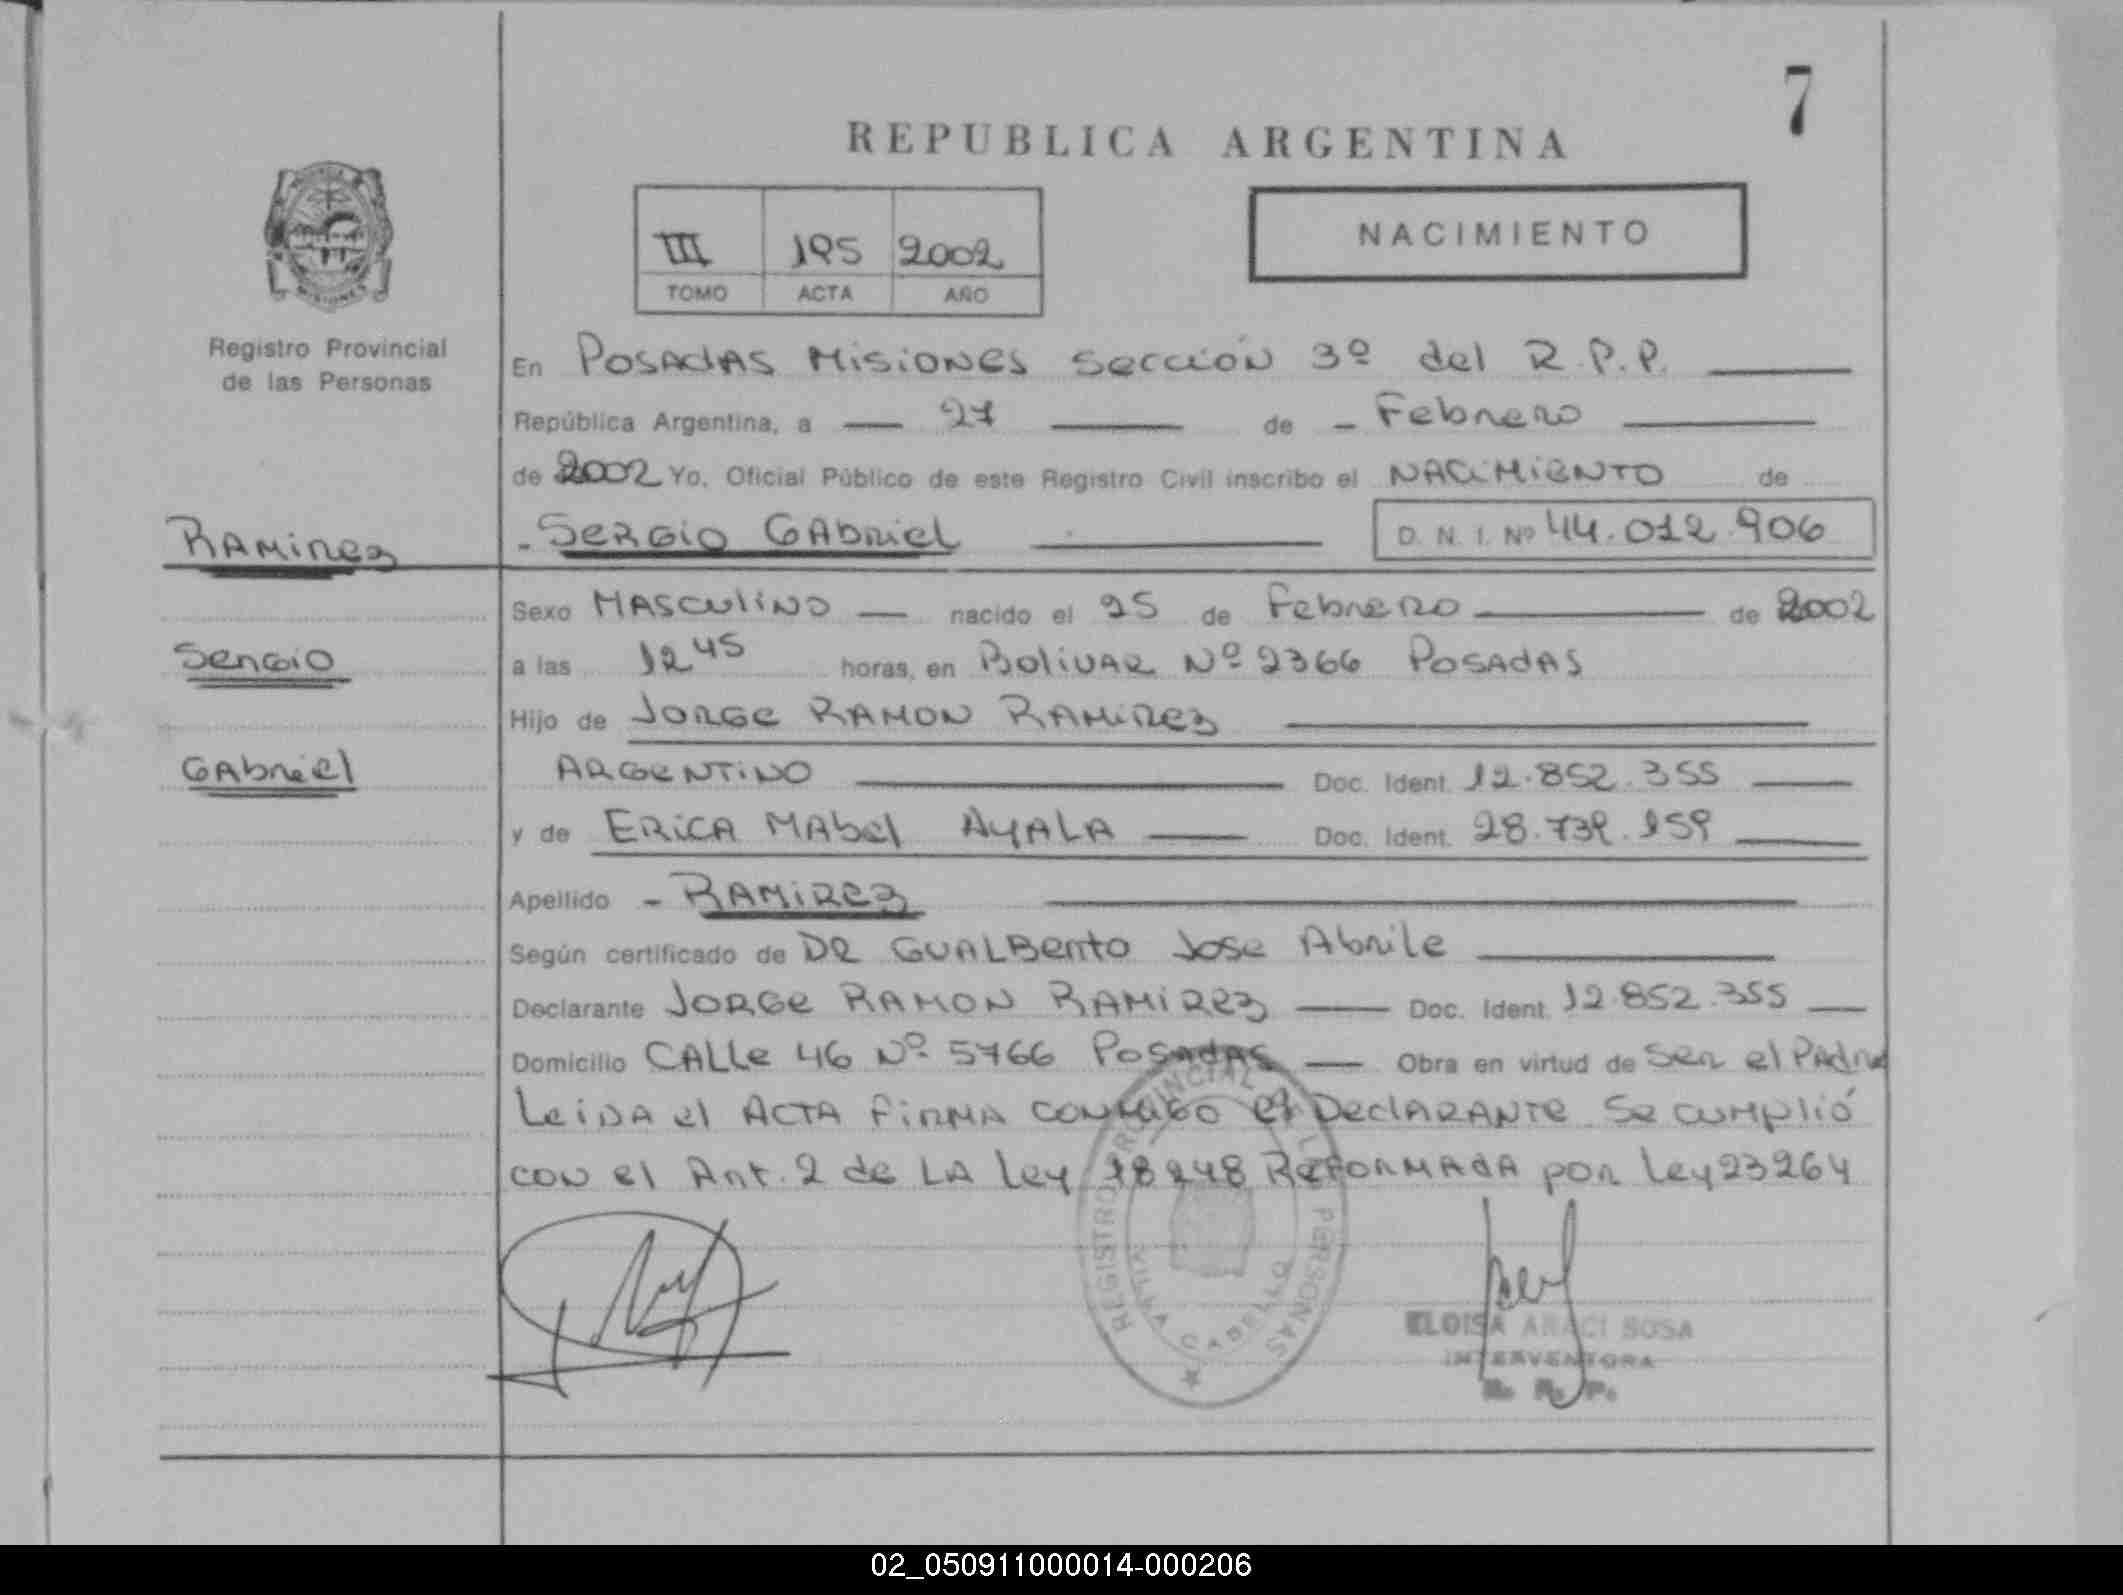 7
REPUBLICA ARGENTINA
III 195 2002
TOMO ACTA AÑO
NACIMIENTO
MISIONES
Registro Provincial
de las Personas
En POSADAS MISIONES Sección 3º del R.P.P.
República Argentina, a 27 de Febrero
de 2002 Yo, Oficial Público de este Registro Civil inscribo el NACIMIENTO de
Ramirez
- SERGIO GABRIEL D. N. I. Nº 44.012.906
Sexo MASCULINO nacido el 25 de Febrero de 2002
Sergio
a las 12 45 horas, en BOLIVAR Nº 2366 POSADAS
Hijo de JORGE RAMON RAMIREZ
Gabriel
ARGENTINO Doc. Ident. 12.852.355
y de ERICA MABEL AYALA Doc. Ident. 28.739.159
Apellido - RAMIREZ
Según certificado de DR GUALBERTO JOSE Abrile
Declarante JORGE RAMON RAMIREZ Doc. Ident. 12.852.355
Domicilio CALLE 46 Nº 5766 POSADAS Obra en virtud de Ser el PADRE
Leida el ACTA FIRMA CONMIGO el DECLARANTE Se cumplió
con el Art. 2 de LA Ley 18248 REFORMADA por Ley 23264
REGISTRO PROVINCIAL PERSONAS
VILLA CABELLO
ELOISA ARACI SOSA
INTERVENTORA
R. P. P.
02_050911000014-000206